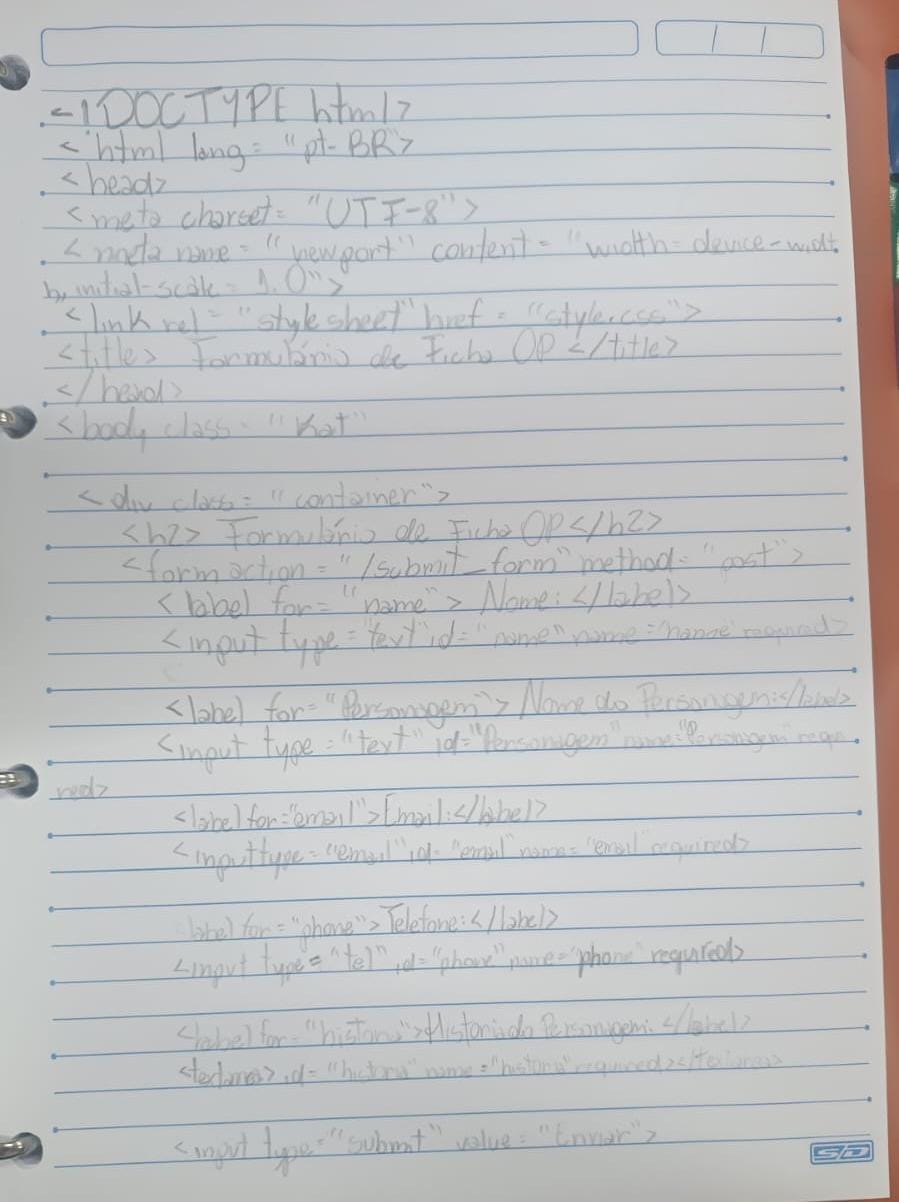 <!DOCTYPE html>
<html lang = "pt-BR">
<head>
<meta charset = "UTF-8">
<meta name = "viewport" content = "width=device-widt
h, initial-scale = 1.0">
<link rel = "stylesheet" href = "style.css">
<title> Formulário de Ficha OP </title>
</head>
<body class = "Kat"
<div class = "container">
<h2> Formulário de Ficha OP </h2>
<form action = "/submit_form" method = "post">
<label for = "name"> Nome: </label>
<input type = "text" id = "name" name = "name" required>
<label for = "Personagem"> Nome do Personagem:</label>
<input type = "text" id="Personagem" name="Personagem" requi
red>
<label for="email">Email:</label>
<input type = "email" id= "email" name= "email" required>
label for= "phone">Telefone:</label>
<input type = "tel" id= "phone" name="phone" required>
<label for= "historia">Historia do Personagem: </label>
<textarea> id= "historia" name = "historia" required></textarea>
<input type = "submit" value = "Enviar">
SD